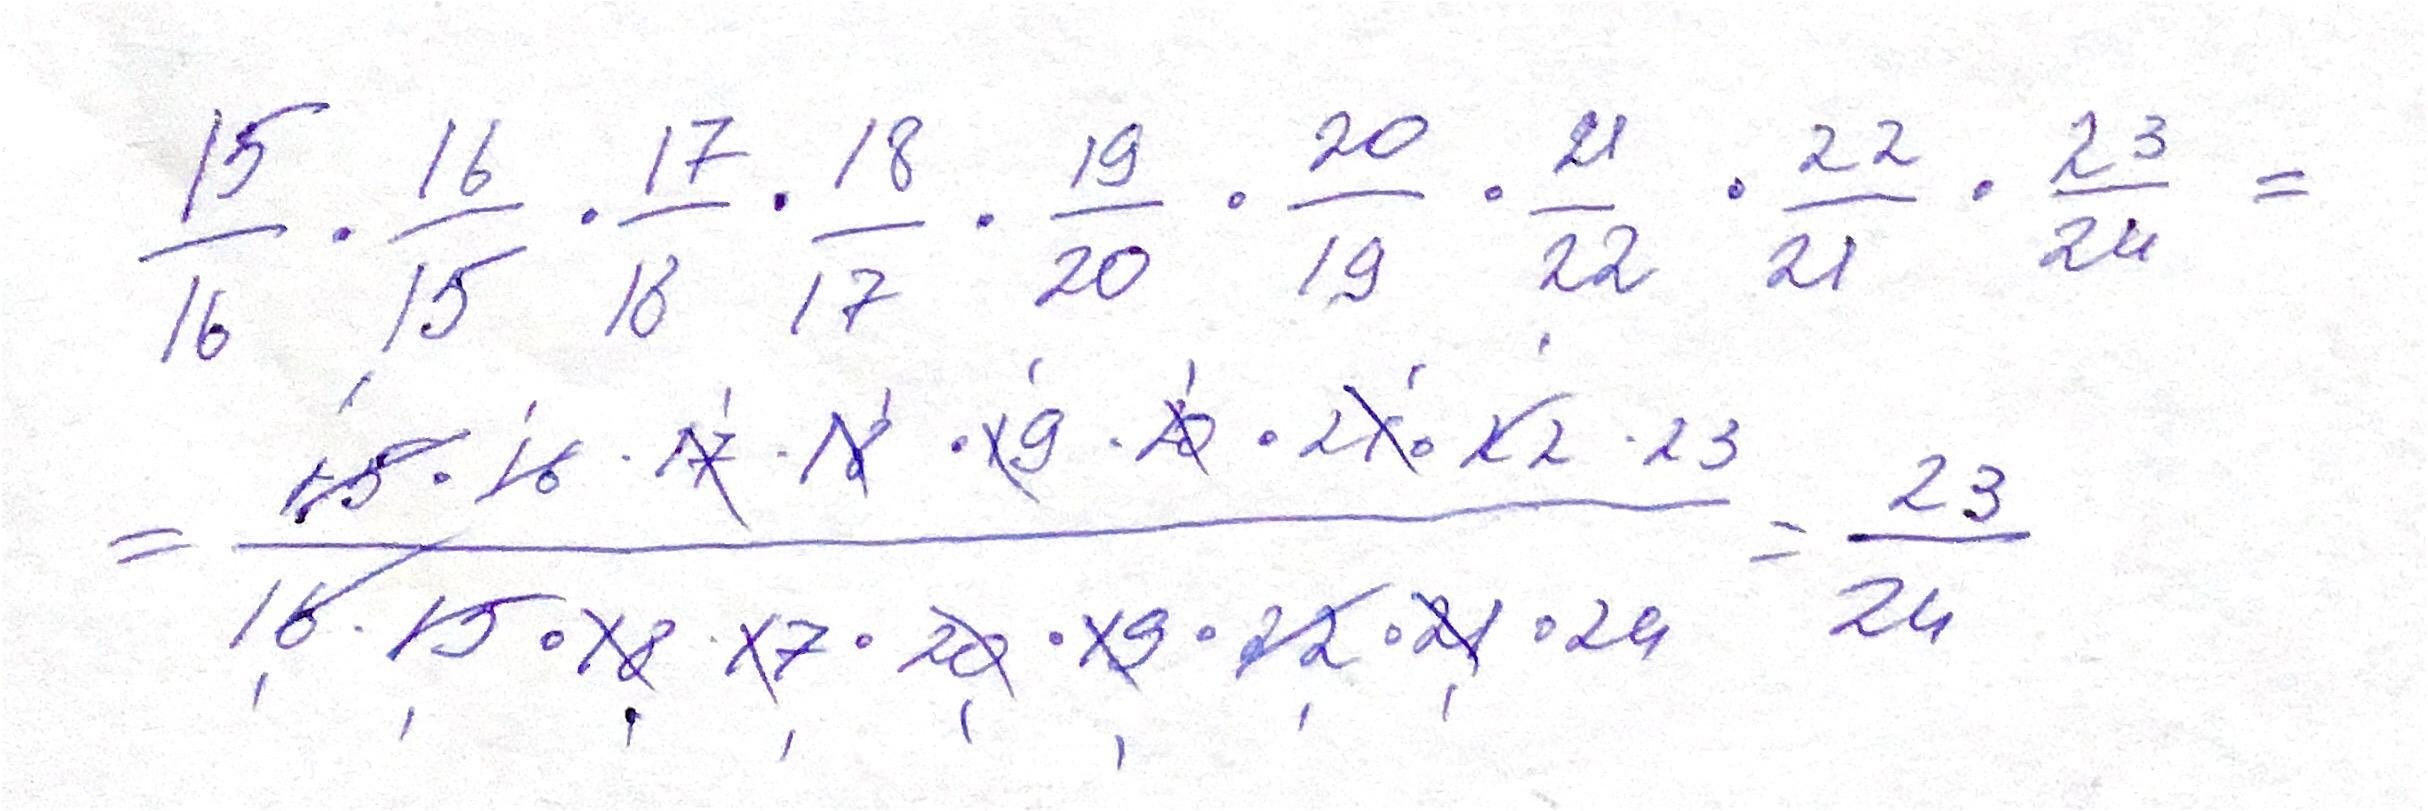 15/16 · 16/15 · 17/18 · 18/17 · 19/20 · 20/19 · 21/22 · 22/21 · 23/24 =
= (15 · 16 · 17 · 18 · 19 · 20 · 21 · 22 · 23)/(16 · 15 · 18 · 17 · 20 · 19 · 22 · 21 · 24) = 23/24